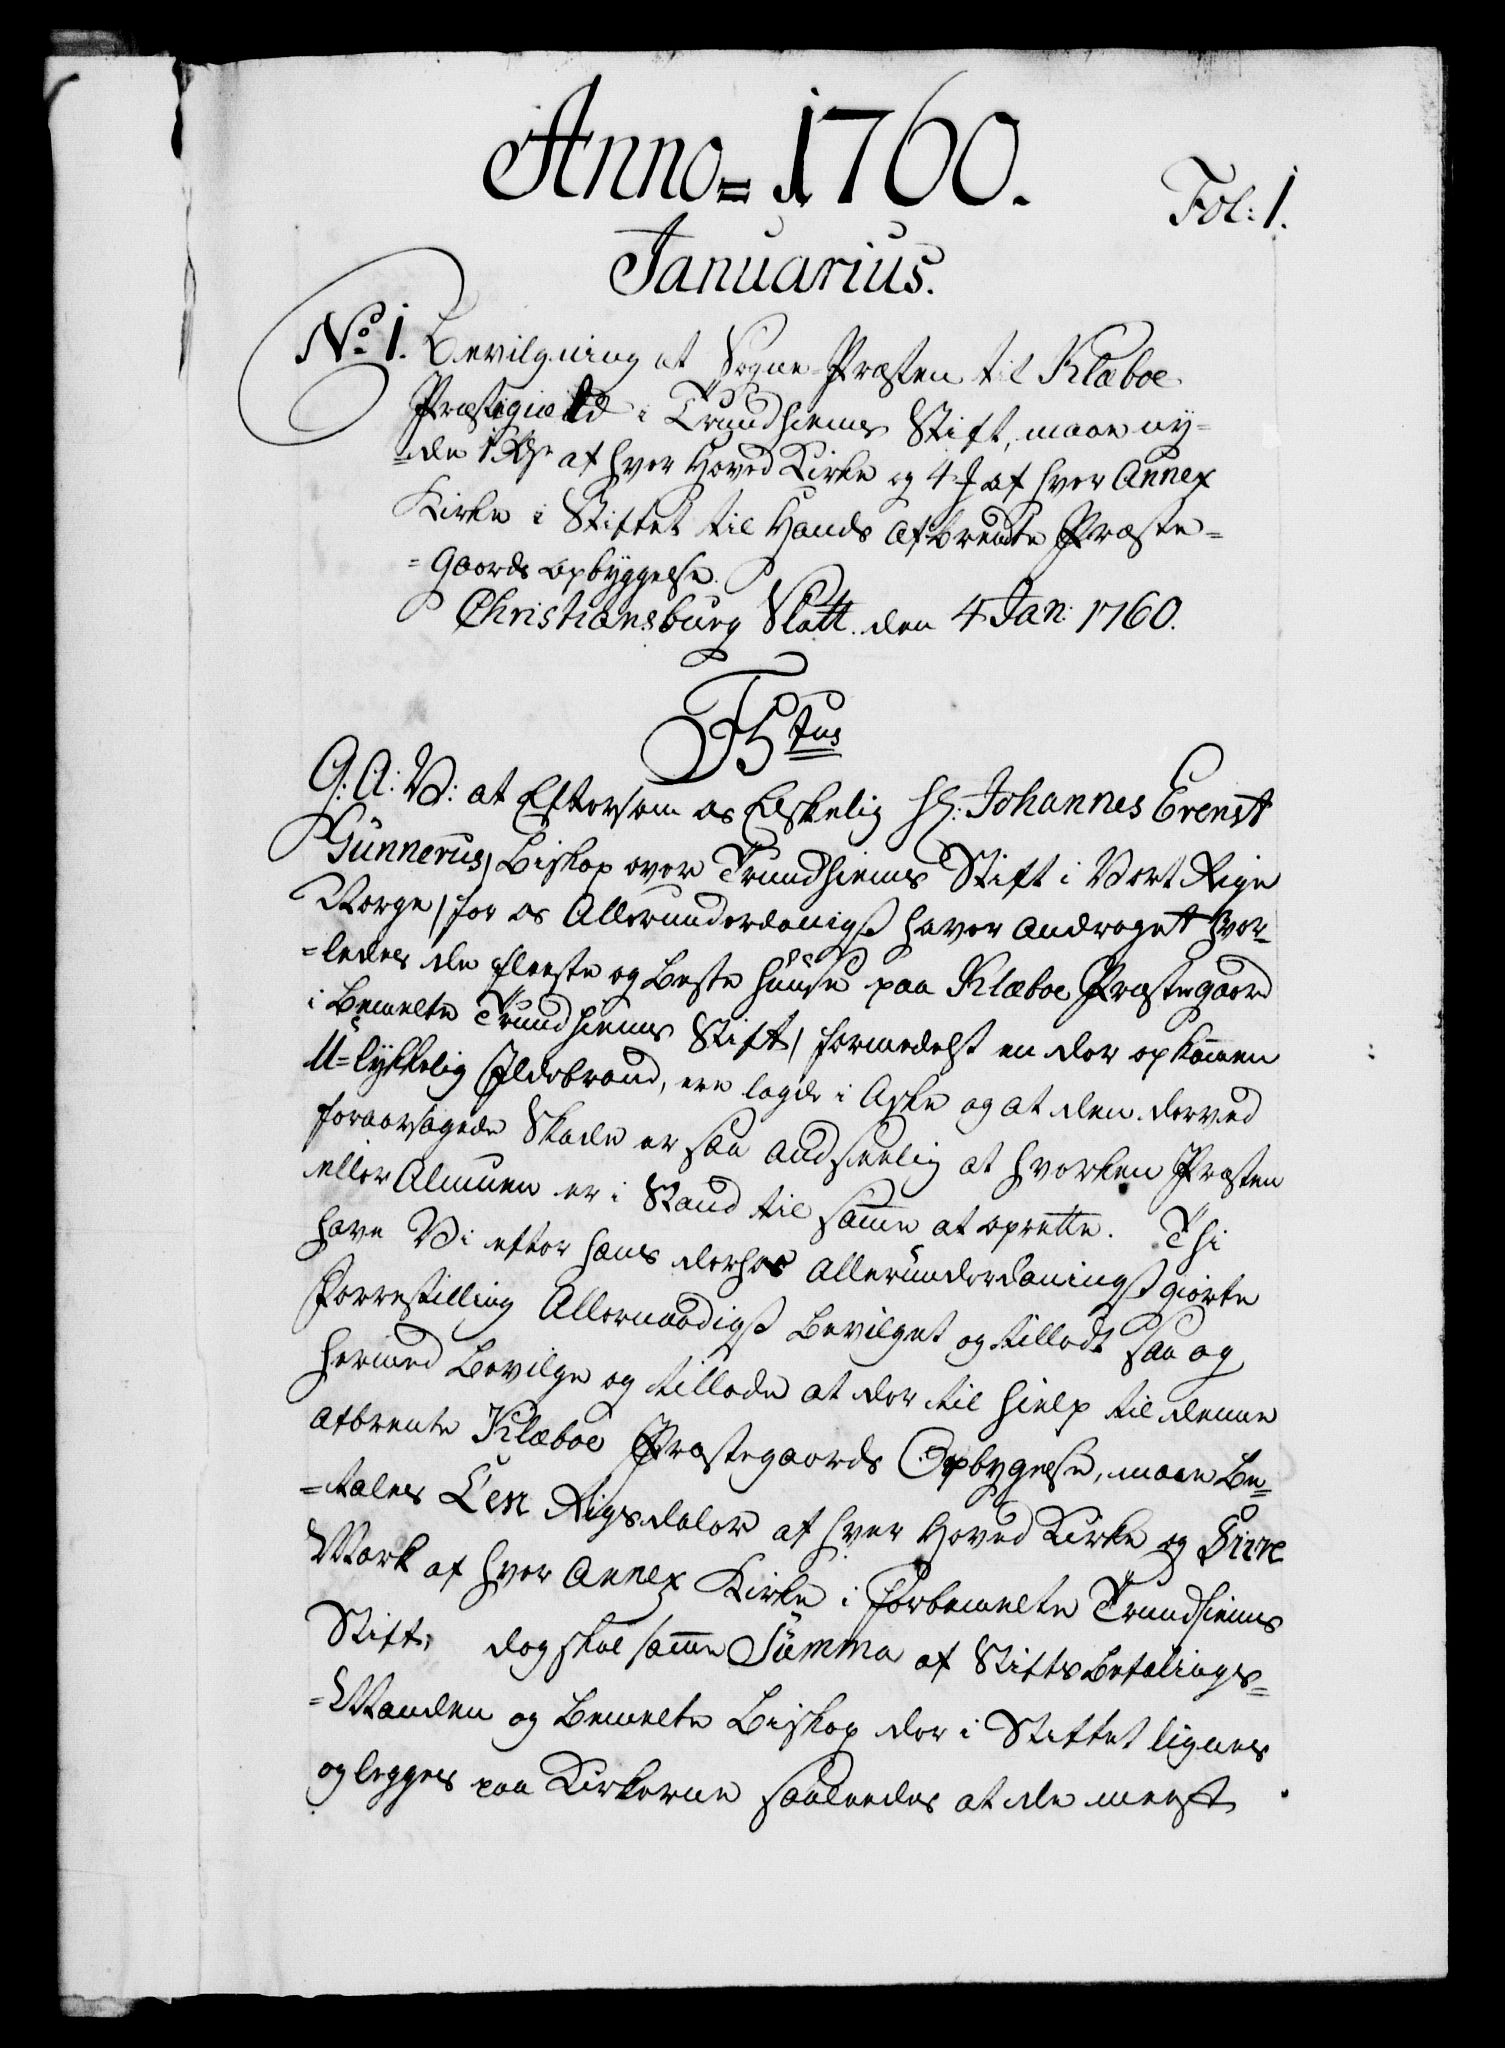 Anno = 1760.
Fol: 1.
Januarius.
No 1. Bevilgning at Sogne-Præsten til Klæboe
Præstegield i Trundhiems Stift, maae ny=
=de 1 Rdr af hver Hoved Kirke og 4 af hver Annex
Kirke i Stiftet til Hands Afbrendte Præste=
=Gaards opbyggelse.
Christiansburg Slott den 4 Jan: 1760.
F5tus
G: A: V: at Eftersom os Elskelig Hr: Johannes Erenst
Gunnerus, Biskop over Trundhiems Stift i Vort Rige
Norge, for os Allerunderdanigst haver Andraget hvor=
=ledes de fleeste og Beste Huuse paa Klæboe Præstegaard
i Bemelte Trundhiems Stift, formedelst en der opkommen
U=lykkelig Ildebrand, ere lagde i Aske og at den derved
foraarsagede Skade er saa Andseelig at hverken Præsten
eller Almuen er i Stand til samme at oprette. Thi
have Vi efter hans derhos Allerunderdaningst giorte
Forrestilling Allernaadigst Bevilget og tilladt saa og
hermed Bevilge og tillade at der til Hielp til denne
Afbrente Klæboe Præstegaards Opbygelse, maae Be=
=tales Een Rigsdaler af hver Hoved Kirke og Fiire
Mark af hver Annex Kirke i Forbemelte Trundhiems
Stift, dog skal samme Summa af Stiftsbefalings=
=Manden og Bemelte Biskop der i Stiftet lignes
og legges paa Kirkerne saaledes at de meest